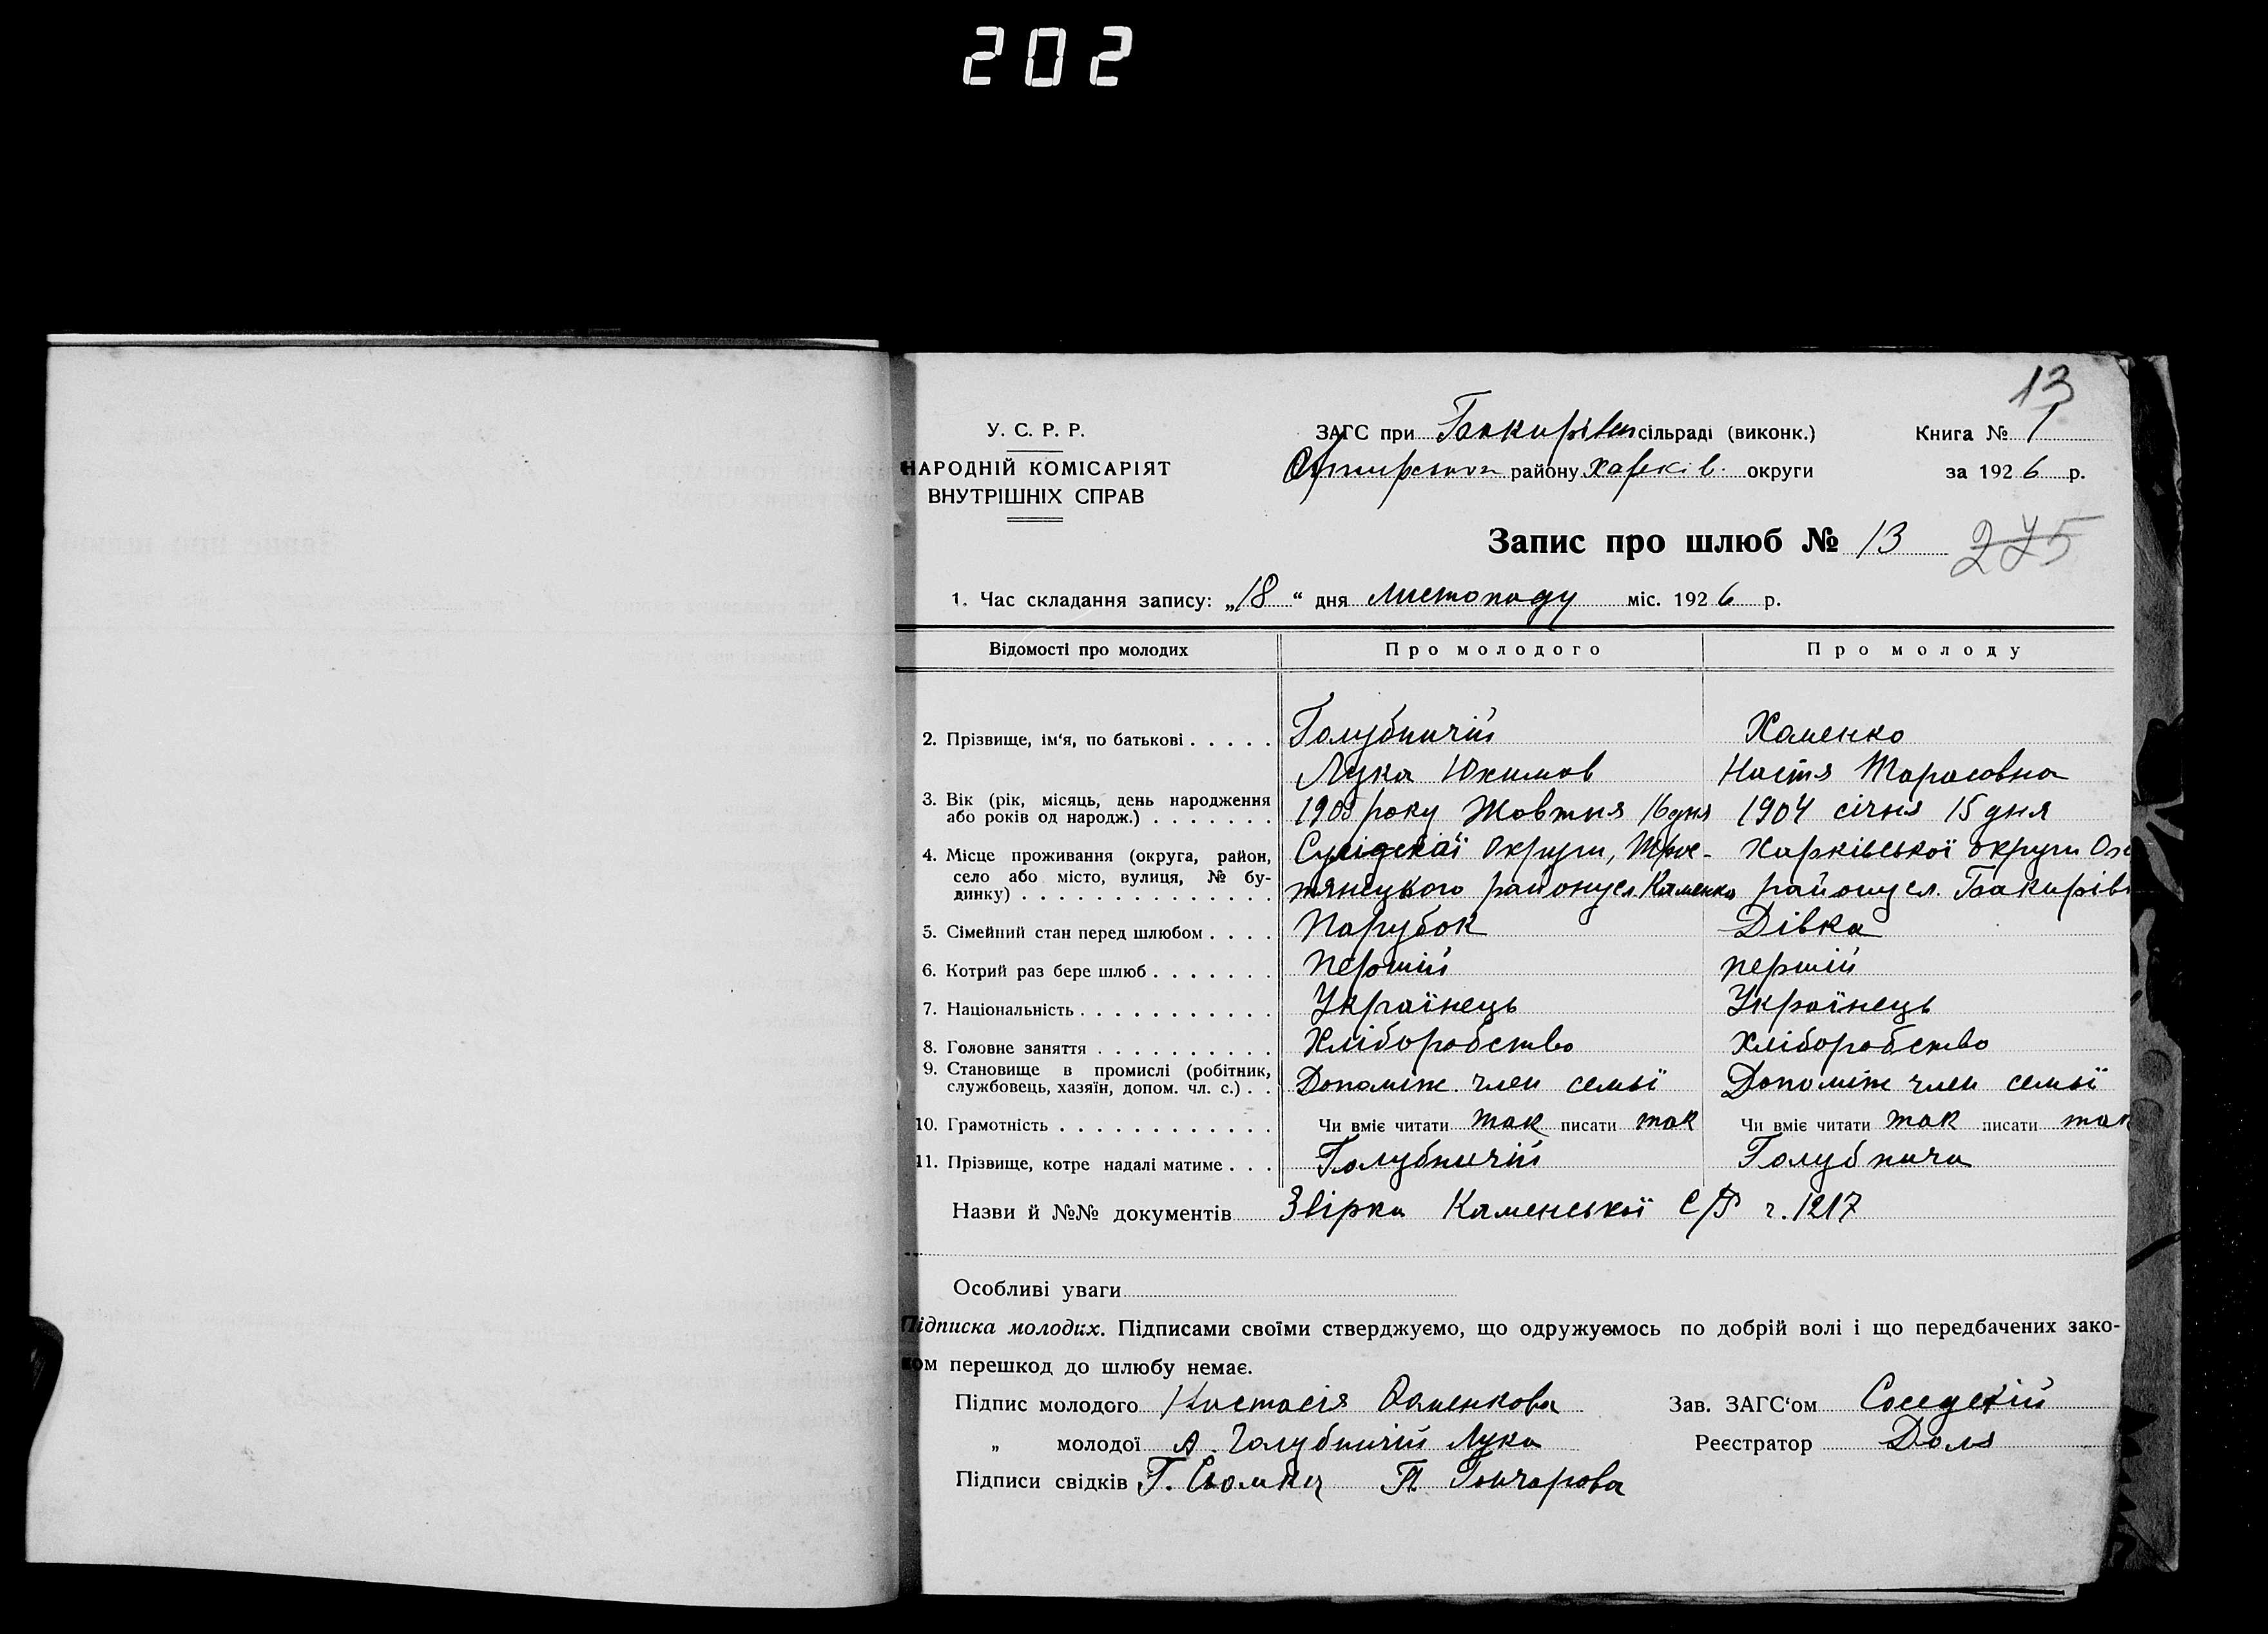 202
13
У. С. Р. Р.
НАРОДНІЙ КОМІСАРІЯТ
ВНУТРІШНІХ СПРАВ
ЗАГС при Бакирівськ сільраді (виконк.)
району Харків. округи
Книга № 1
за 1926 р.
Запис про шлюб № 13 275
1. Час складання запису: „18“ дня листопаду міс. 1926 р.
Відомості про молодих Про молодого Про молоду
2. Прізвище, ім‘я, по батькові . . . . . Голубничій Хаменко
Лука Юхимов Настя Тарасовна
3. Вік (рік, місяць, день народження
або років од народж.) . . . . . . . 1905 року Жовтня 16 дня 1904 січня 15 дня
4. Місце проживання (округа, район,
село або місто, вулиця, № бу-
динку) . . . . . . . . . . . . . .
Округи, Трос- Харківської округи
тянецького району сл. Каменка району сл. Бакирів
5. Сімейний стан перед шлюбом . . . . Парубок Дівка
6. Котрий раз бере шлюб . . . . . . . Першій першій
7. Національність . . . . . . . . . . . Українець Українець
8. Головне заняття . . . . . . . . . . Хліборобство Хліборобство
9. Становище в промислі (робітник,
службовець, хазяїн, допом. чл. с.) . . Допоміж член семьї Допоміж член семьї
10. Грамотність . . . . . . . . . . . . Чи вміє читати так писати так Чи вміє читати так писати так
11. Прізвище, котре надалі матиме . . . Голубничій Голубнича
Назви й №№ документів Звірка Каменської С/Р ч. 1217
Особливі уваги
Підписка молодих. Підписами своїми стверджуємо, що одружуємось по добрій волі і що передбачених зако-
ном перешкод до шлюбу немає.
Підпис молодого Настасія Хаменкова Зав. ЗАГС‘ом Соседскій
„ молодої Голубничій Лука Реєстратор Доля
Підписи свідків Г. Сьомка П Гончарова